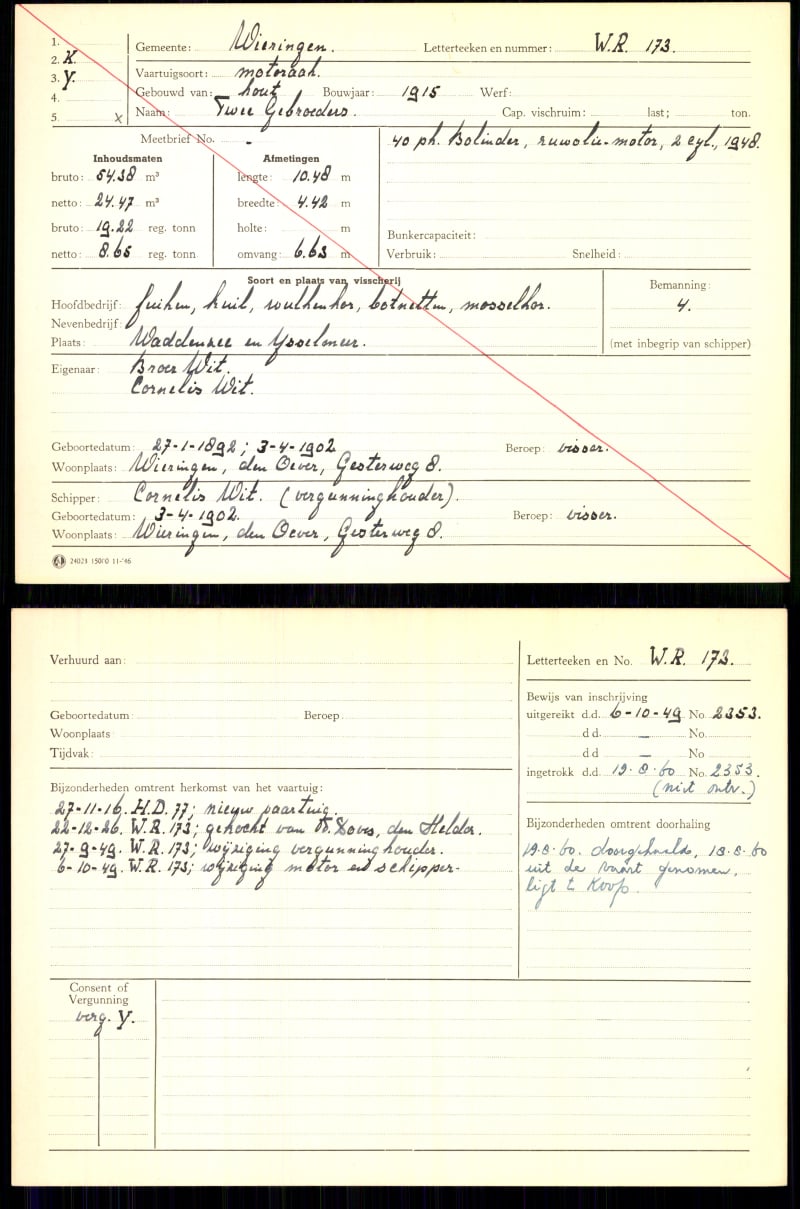 1.
2. K.
3. Y.
4.
5. x
Gemeente: Wieringen. Letterteeken en nummer: W.R. 173.
Vaartuigsoort: motoraak.
Gebouwd van: hout Bouwjaar: 1915 Werf:
Naam: Twee Gebroeders. Cap. vischruim: last; ton.
Meetbrief No. -
Inhoudsmaten
bruto: 54.38 m³
netto: 24.47 m³
bruto: 19.22 reg. tonn
netto: 8.65 reg. tonn
Afmetingen
lengte: 10.48 m
breedte: 4.42 m
holte: m
omvang: 6.63 m
40 pk. Bolinder, ruwolie-motor, 2 cyl., 1948.
Bunkercapaciteit:
Verbruik: Snelheid:
Soort en plaats van visscherij
Hoofdbedrijf: fuiken, kuil, wulkenkor, botnetten, mosselkor.
Nevenbedrijf:
Plaats: Waddenzee en IJsselmeer.
Bemanning:
4.
(met inbegrip van schipper)
Eigenaar: Broer Wit.
Cornelis Wit.
Geboortedatum: 27-1-1892; 3-4-1902 Beroep: visser.
Woonplaats: Wieringen, den Oever, Gesterweg 8.
Schipper: Cornelis Wit. (vergunninghouder).
Geboortedatum: 3-4-1902. Beroep: visser.
Woonplaats: Wieringen, den Oever, Gesterweg 8.
24021 15000 11-'46
Verhuurd aan:
Geboortedatum: Beroep
Woonplaats:
Tijdvak:
Letterteeken en No. W.R. 173.
Bewijs van inschrijving
uitgereikt d.d. 6-10-49 No 2353.
d d. - No.
d d - No
ingetrokk d.d. 19-8-60 No. 2353.
(niet ontv.)
Bijzonderheden omtrent herkomst van het vaartuig:
27-11-16. H.D. 77; nieuw vaartuig.
22-12-26. W.R. 173; gekocht van den Helder.
27-9-49. W.R. 173; wijziging vergunninghouder.
6-10-49. W.R. 173; wijziging motor en schipper.
Bijzonderheden omtrent doorhaling
19-8-60. doorgehaald, 18-8-60
uit de vaart genomen,
ligt te koop.
Consent of
Vergunning
verg. Y.